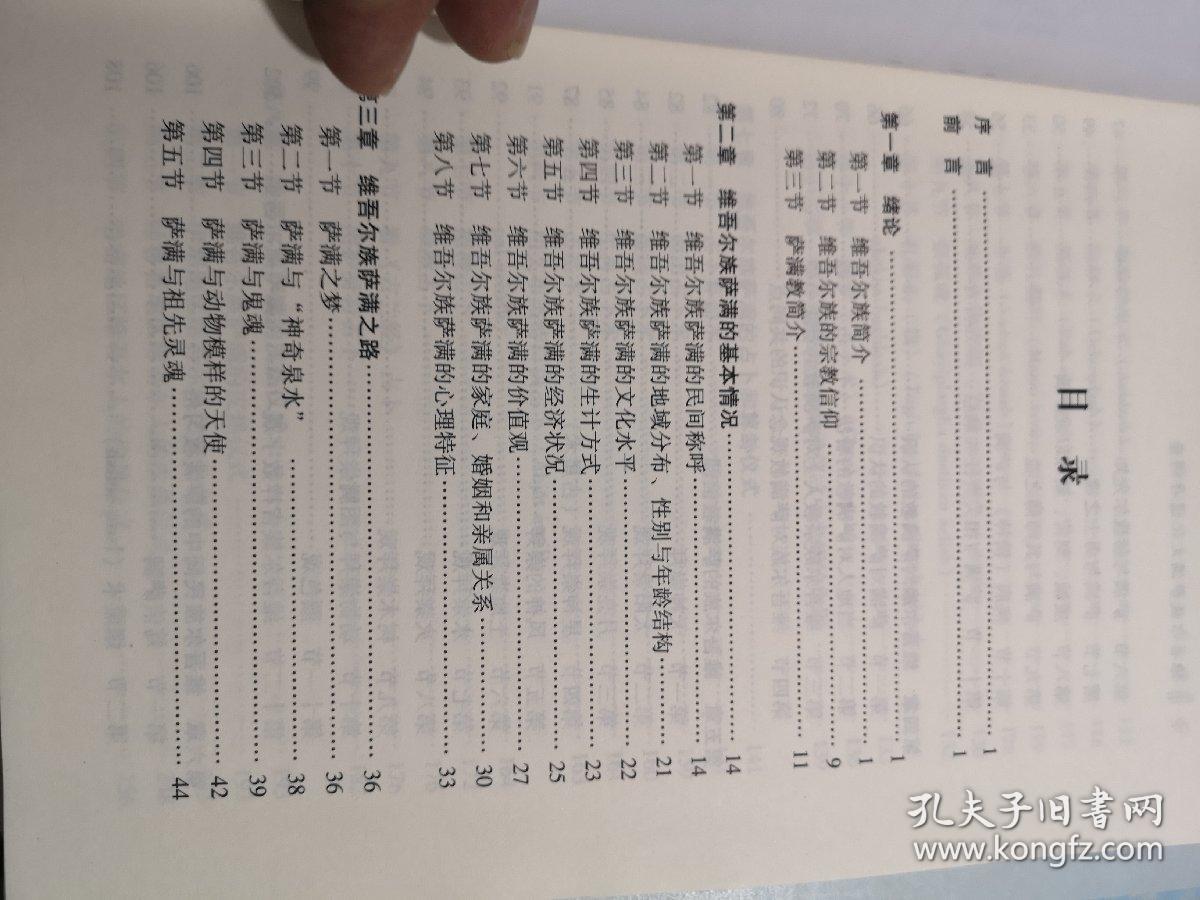 目 录
序 言 1
前 言 1
第一章 绪论 1
第一节 维吾尔族简介 1
第二节 维吾尔族的宗教信仰 9
第三节 萨满教简介 11
第二章 维吾尔族萨满的基本情况 14
第一节 维吾尔族萨满的民间称呼 14
第二节 维吾尔族萨满的地域分布、性别与年龄结构 21
第三节 维吾尔族萨满的文化水平 22
第四节 维吾尔族萨满的生计方式 23
第五节 维吾尔族萨满的经济状况 25
第六节 维吾尔族萨满的价值观 27
第七节 维吾尔族萨满的家庭、婚姻和亲属关系 30
第八节 维吾尔族萨满的心理特征 33
第三章 维吾尔族萨满之路 36
第一节 萨满之梦 36
第二节 萨满与“神奇泉水” 38
第三节 萨满与鬼魂 39
第四节 萨满与动物模样的天使 42
第五节 萨满与祖先灵魂 44
孔夫子旧书网
www.kongfz.com